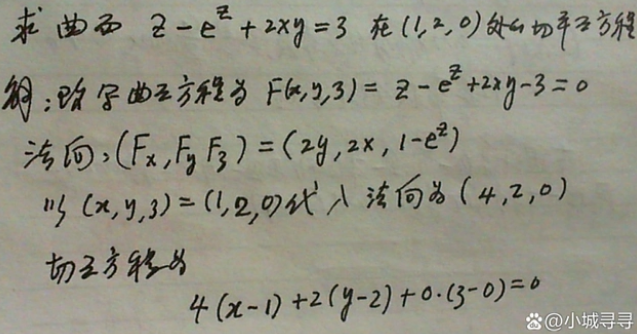 求曲面 z-e^z+2xy=3 在(1,2,0)处的切平面方程
解:改写曲面方程为 F(x,y,z)=z-e^z+2xy-3=0
法向:(Fx,Fy Fz)=(2y,2x,1-e^z)
以(x,y,z)=(1,2,0)代入法向为(4,2,0)
切平面方程为
4(x-1)+2(y-2)+0·(z-0)=0
@小城寻寻